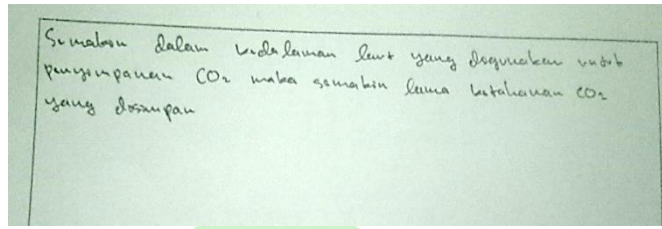 Semakin dalam kedalaman laut yang digunakan untuk
penyimpanan CO₂ maka semakin lama ketahanan CO₂
yang disimpan